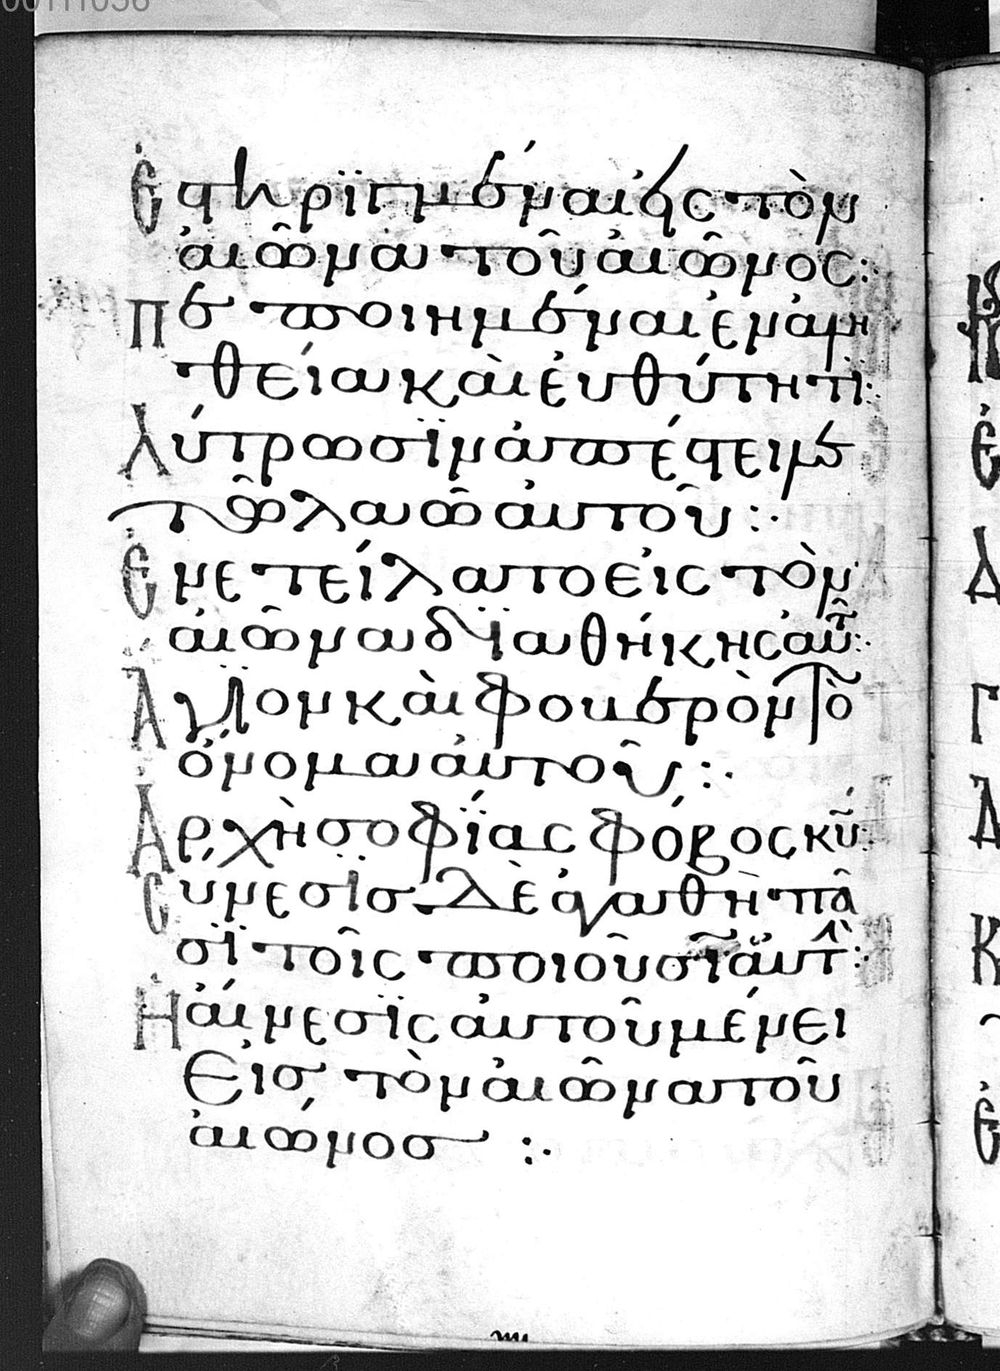 00111036
Ἐστηριγμέναι εἰς τὸν
ἀιῶνα τοῦ ἀιῶνος:
πεποιημέναι ἐν ἀλη
θεία κὰι ἐυθύτητι:
Λύτρωσιν ἀπέστειλε
τῶ λαῶ ἀυτοῦ :·
Ἐνετείλατο εἰς τὸν
ἀιῶνα διαθήκης ἀυτοῦ:
Ἅγιον κὰι φοβερὸν τὸ
ὄνομα ἀυτοῦ :·
Ἀρχὴ σοφίας φόβος κῦ:
Σύνεσις δὲ ἀγαθὴ πᾶ
σι τοῖς ποιοῦσιν ἀυτήν:
Ἡ ἄινεσις ἀυτοῦ μένει
Εἰς τὸν ἀιῶνα τοῦ
ἀιῶνος :·